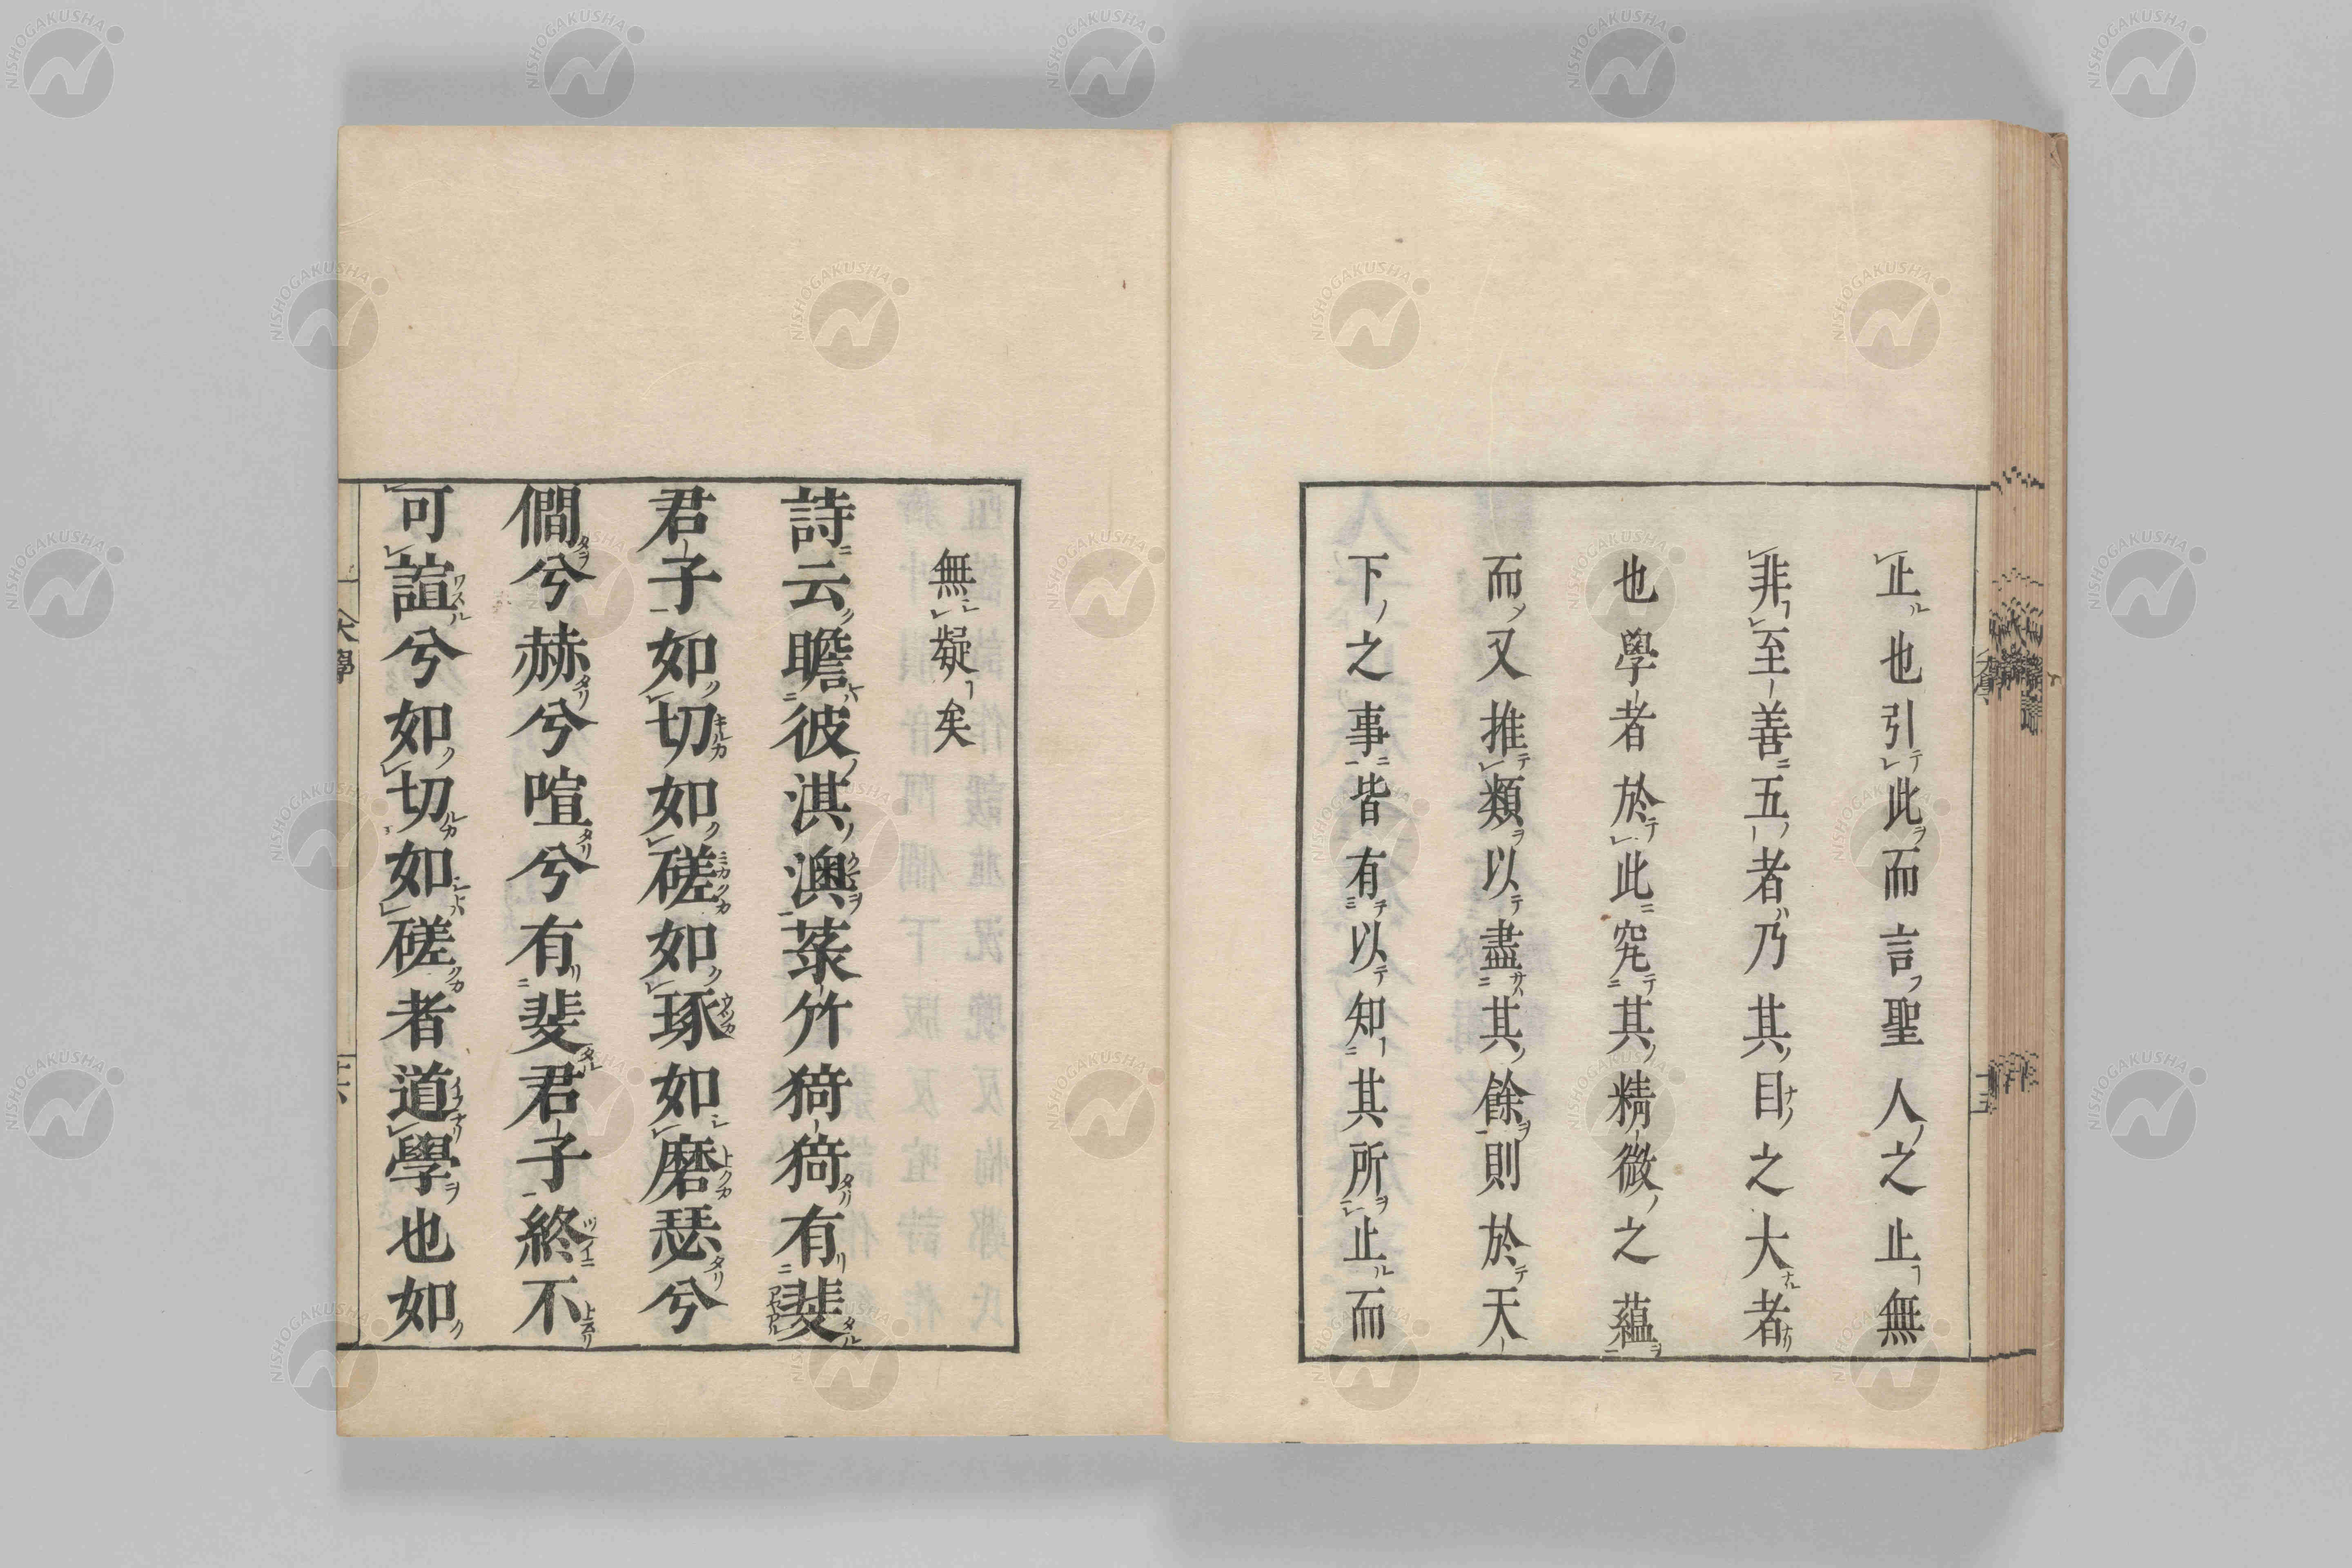 止也引此而言聖人之止無
非至善五者乃其目之大者
也學者於此究其精微之蘊
而又推類以盡其餘則於天
下之事皆有以知其所止而
無疑矣
詩云瞻彼淇澳菉竹猗猗有斐
君子如切如磋如琢如磨瑟兮
僩兮赫兮喧兮有斐君子終不
可諠兮如切如磋者道學也如
大學
NISHOGAKUSHA